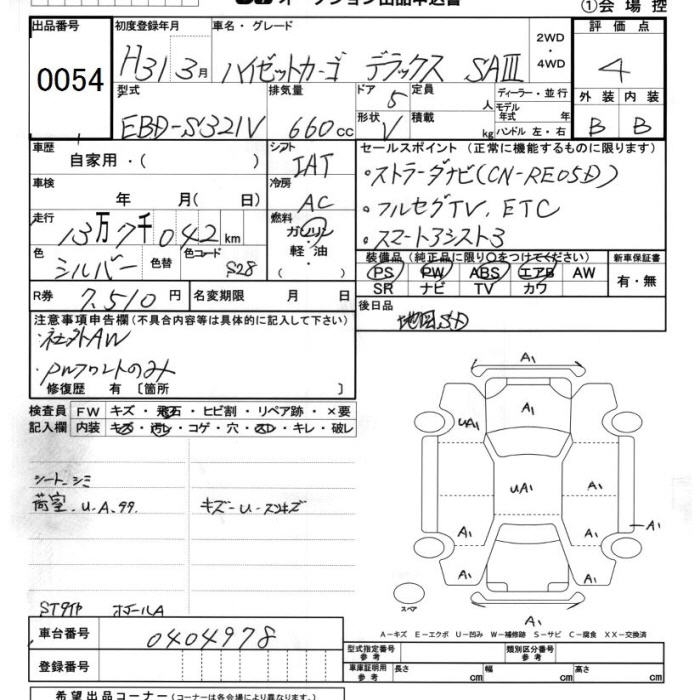 オークション出品申込書
①会場控
出品番号
0054
初度登録年月
H31 3月
車名・グレード
ハイゼットカーゴ デラックス SAIII
2WD
・
4WD
評価点
4
型式
EBD-S321V
排気量
660cc
ドア
5
定員
人
形状
V
積載
kg
ディーラー・並行
モデル年式
年式
ハンドル 左・右
外装
内装
B
B
車歴
自家用・( )
シフト
IAT
セールスポイント (正常に機能するものに限ります)
・ストラーダナビ(CN-RE05D)
・フルセグTV、ETC
・スマートアシスト3
車検
年 月( 日)
冷房
AC
走行
13万7千042km
燃料
ガソリン
軽・油
・( )
色
シルバー
色替
色コード
S28
装備品 (純正品に限り○をつけてください)
PS PW ABS エアB AW
SR ナビ TV カワ
新車保証書
有・無
R券
7,510円
名変期限 月 日
後日品
地図SD
注意事項申告欄(不具合内容等は具体的に記入して下さい)
・社外AW
・PWフロントのみ
修復歴 有 〔箇所 〕
検査員
記入欄
FW キズ・飛石・ヒビ割・リペア跡・×要
内装 キズ・汚レ・コゲ・穴・スレ・キレ・破レ
シート、シミ
荷室、U.A.
キズ-U-スリキズ
STタイヤ ホイールA
A1
A1
UA1
A1
UA1
A1
A1
A1
A1
A1
A1
A1
スペア
A-キズ E-エクボ U-凹み W-補修跡 S-サビ C-腐食 XX-交換済
車台番号
0404978
登録番号
型式指定番号
参考
類別区分番号
参考
車庫証明用
参考
長さ cm 幅 cm 高さ cm
希望出品コーナー (コーナーは各会場により異なります。)